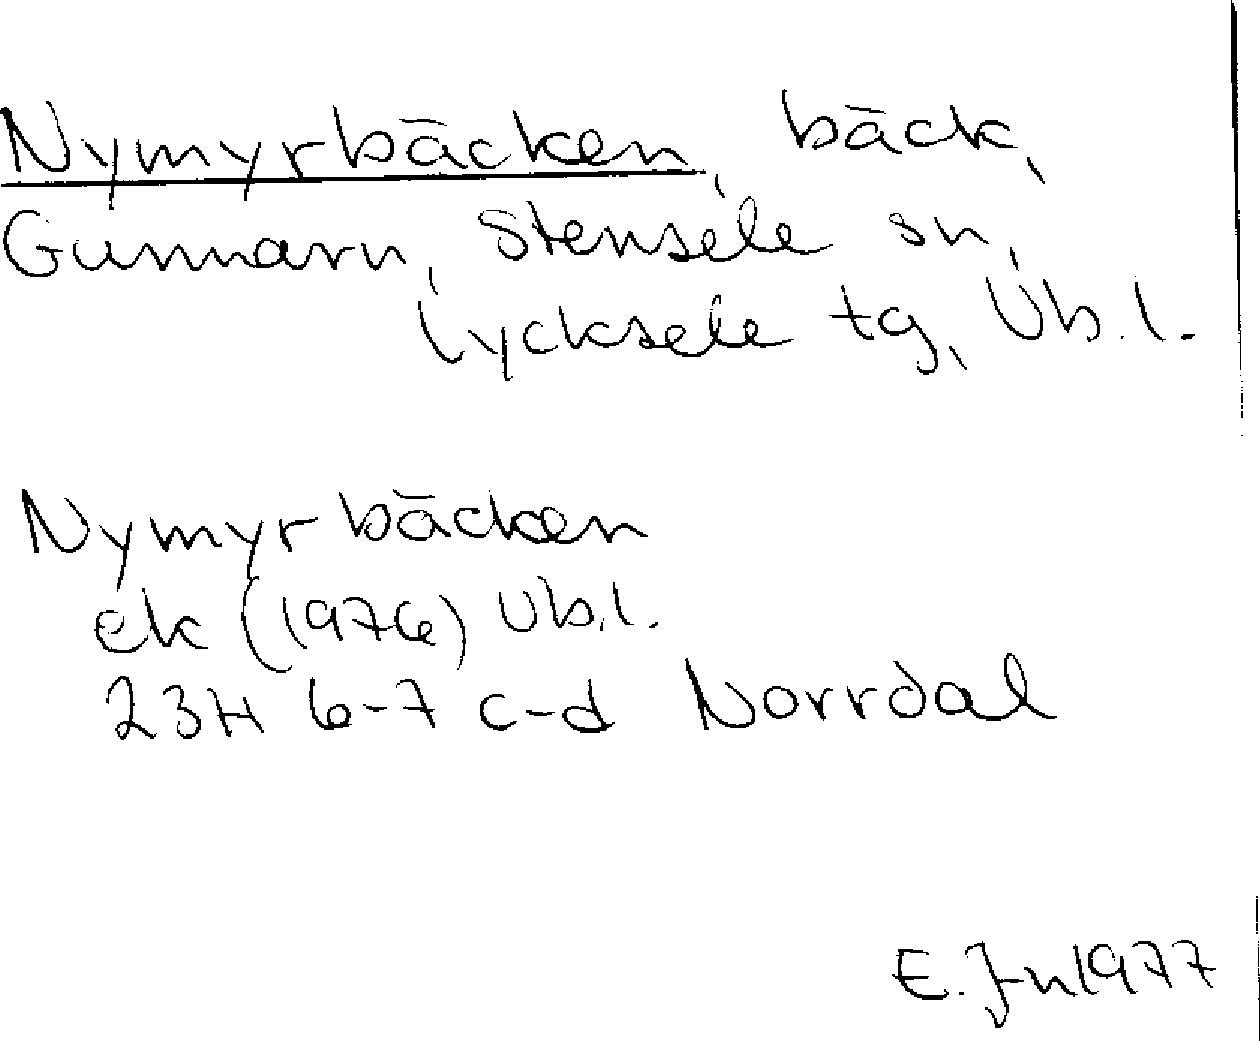 Nymyrbäcken, bäck,
Gunnarn, Stensele sn,
Lycksele tg, Vb.l.
Nymyrbäcken
ek (1976) Vb.l.
23H 6-7 c-d Norrdal
E. Jn 1977